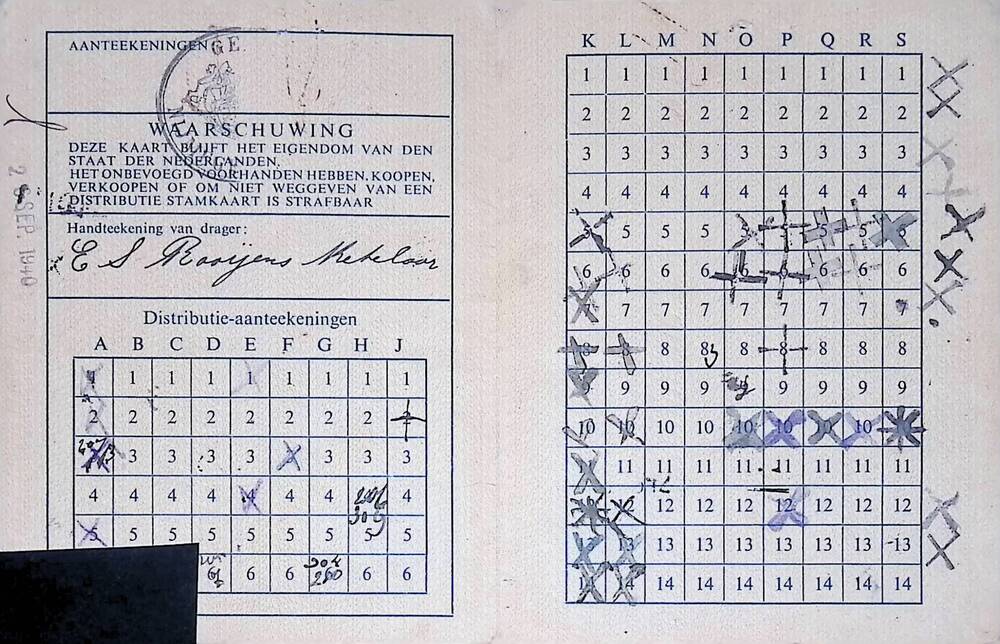 AANTEEKENINGEN
GE
WAARSCHUWING
DEZE KAART BLIJFT HET EIGENDOM VAN DEN
STAAT DER NEDERLANDEN.
HET ONBEVOEGD VOORHANDEN HEBBEN, KOOPEN,
VERKOOPEN OF OM NIET WEGGEVEN VAN EEN
DISTRIBUTIE STAMKAART IS STRAFBAAR
SEP. 1940
Handteekening van drager:
E S Rooijens Ketelaar
Distributie-aanteekeningen
A B C D E F G H J
1 1 1 1 1 1 1 1 1
2 2 2 2 2 2 2 2 2
3 3 3 3 3 3
4 4 4 4 4 4 4 4
5 5 5 5 5 5 5 5 5
6 6 6 6 6
K L M N O P Q R S
1 1 1 1 1 1 1 1 1
2 2 2 2 2 2 2 2 2
3 3 3 3 3 3 3 3 3
4 4 4 4 4 4 4 4 4
5 5 5 5 5 5 5 5 5
6 6 6 6 6 6 6 6 6
7 7 7 7 7 7 7 7
8 8 8 8 8 8 8 8 8
9 9 9 9 9 9 9
10 10 10 10 10 10 10 10
11 11 11 11 11 11 11 11
12 12 12 12 12 12 12 12
13 13 13 13 13 13 13 13
14 14 14 14 14 14 14